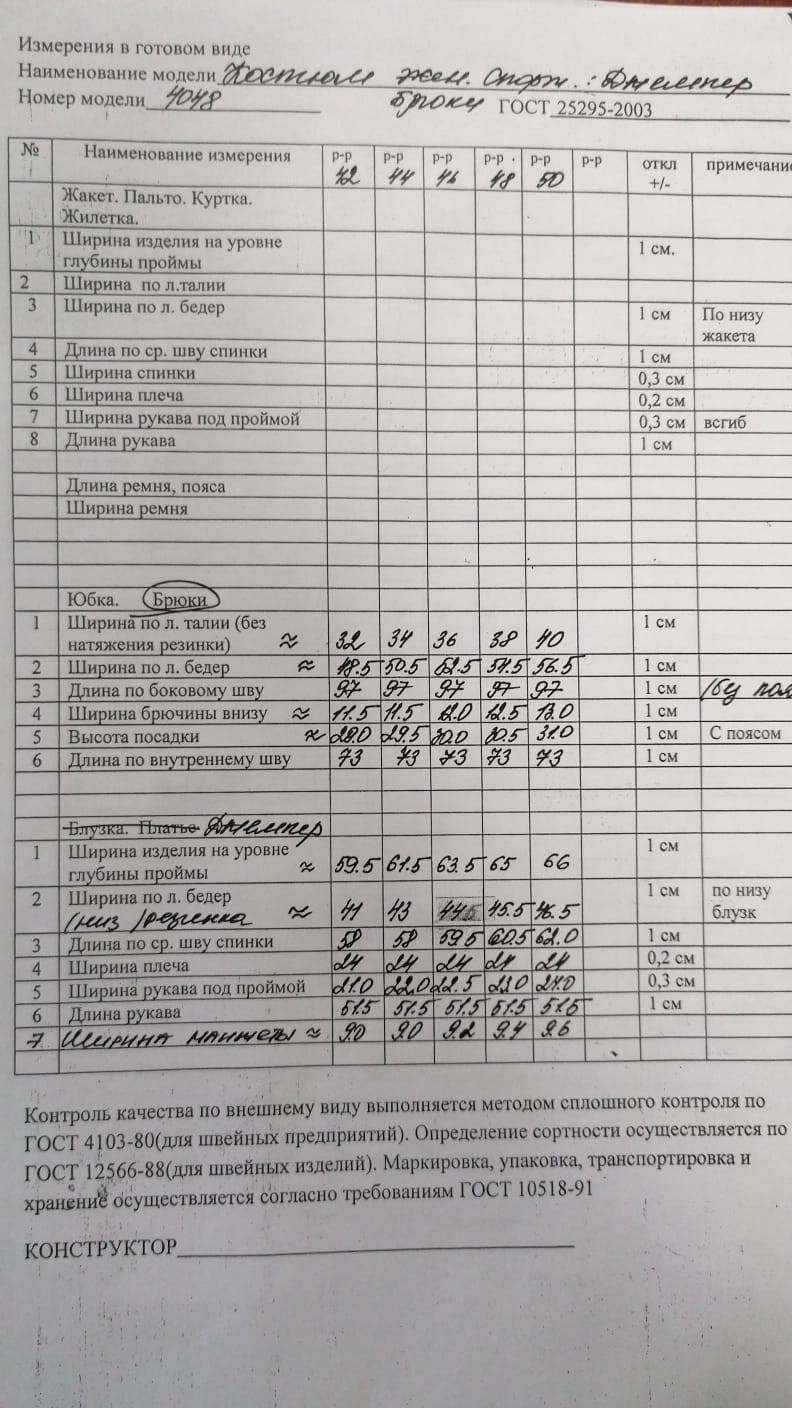 Измерения в готовом виде
Наименование модели Костюм жен. спорт.: Джемпер
Номер модели 4048 брюки ГОСТ 25295-2003
№ Наименование измерения р-р 42 р-р 44 р-р 46 р-р 48 р-р 50 р-р откл +/- примечание
Жакет. Пальто. Куртка.
Жилетка.
1 Ширина изделия на уровне 1 см.
глубины проймы
2 Ширина по л.талии
3 Ширина по л. бедер 1 см По низу
жакета
4 Длина по ср. шву спинки 1 см
5 Ширина спинки 0,3 см
6 Ширина плеча 0,2 см
7 Ширина рукава под проймой 0,3 см всгиб
8 Длина рукава 1 см
Длина ремня, пояса
Ширина ремня
Юбка. Брюки
1 Ширина по л. талии (без 1 см
натяжения резинки) ≈ 32 34 36 38 40
2 Ширина по л. бедер ≈ 48.5 50.5 52.5 54.5 56.5 1 см
3 Длина по боковому шву 97 97 97 97 97 1 см (без
4 Ширина брючины внизу ≈ 11.5 11.5 12.0 12.5 13.0 1 см
5 Высота посадки ≈ 29.0 29.5 30.0 30.5 31.0 1 см С поясом
6 Длина по внутреннему шву 73 73 73 73 73 1 см
Блузка. Платье Джемпер
1 Ширина изделия на уровне 1 см
глубины проймы ≈ 59.5 61.5 63.5 65 66
2 Ширина по л. бедер 1 см по низу
(низ) резинка ≈ 41 43 44.5 45.5 46.5 блузк
3 Длина по ср. шву спинки 58 58 59.5 60.5 62.0 1 см
4 Ширина плеча 24 24 24 24 24 0,2 см
5 Ширина рукава под проймой 21.0 22.0 22.5 23.0 24.0 0,3 см
6 Длина рукава 51.5 51.5 51.5 51.5 51.5 1 см
7 Ширина манжеты ≈ 9.0 9.0 9.2 9.4 9.6
Контроль качества по внешнему виду выполняется методом сплошного контроля по
ГОСТ 4103-80(для швейных предприятий). Определение сортности осуществляется по
ГОСТ 12566-88(для швейных изделий). Маркировка, упаковка, транспортировка и
хранение осуществляется согласно требованиям ГОСТ 10518-91
КОНСТРУКТОР